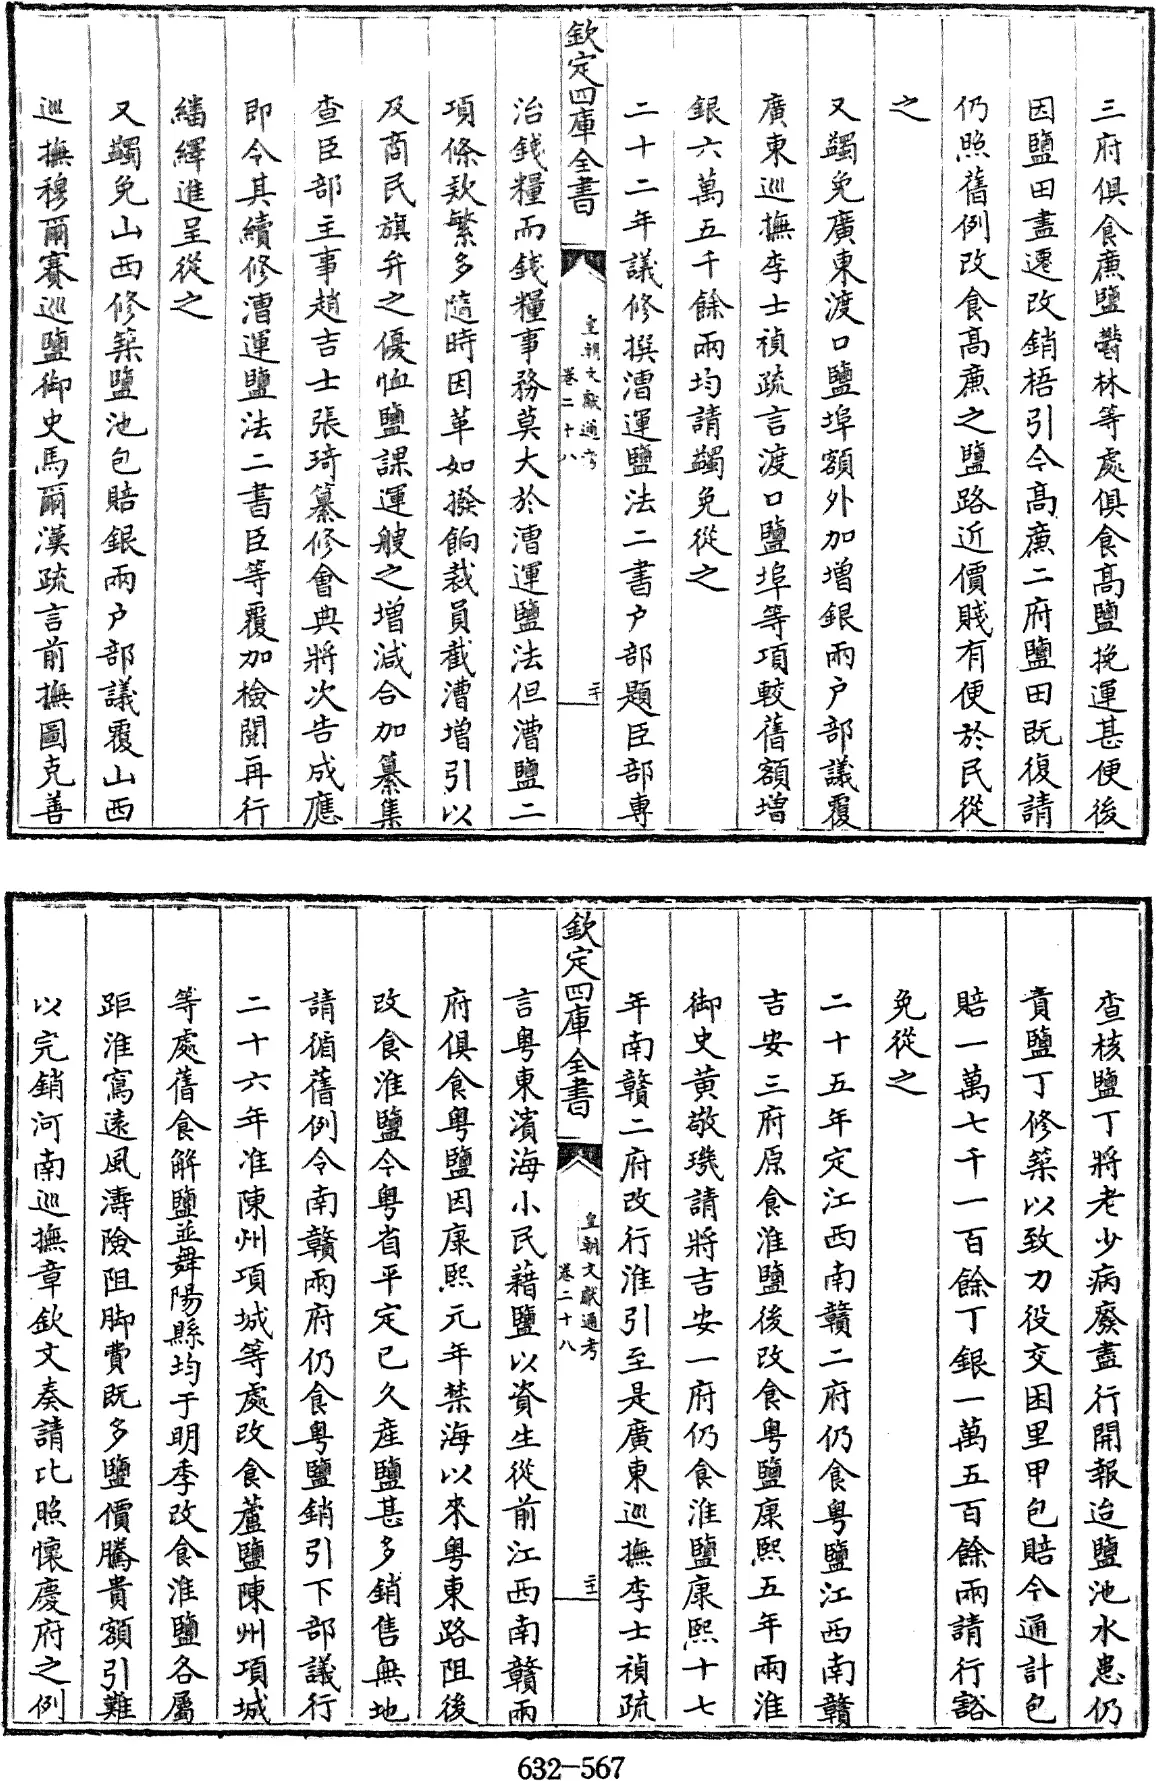 三府俱食廉鹽鬱林等處俱食高鹽挽運甚便後
因鹽田盡遷改銷梧引今高廉二府鹽田既復請
仍照舊例改食高廉之鹽路近價賤有便於民從
之
又蠲免廣東渡口鹽埠額外加增銀兩户部議覆
廣東巡撫李士禎疏言渡口鹽埠等項較舊額增
銀六萬五千餘兩均請蠲免從之
二十二年議修撰漕運鹽法二書户部題臣部專
欽定四庫全書
皇朝文獻通考
卷二十八
二十
治錢糧而錢糧事務莫大於漕運鹽法但漕鹽二
項條欵繁多隨時因革如撥餉裁員截漕增引以
及商民旗弁之優恤鹽課運艘之增減合加纂集
查臣部主事趙吉士張琦纂修會典將次告成應
即令其續修漕運鹽法二書臣等覆加檢閱再行
繙繹進呈從之
又蠲免山西修築鹽池包賠銀兩户部議覆山西
巡撫穆爾賽巡鹽御史馬爾漢疏言前撫圖克善
查核鹽丁將老少病廢盡行開報迨鹽池水患仍
責鹽丁修築以致力役交困里甲包賠今通計包
賠一萬七千一百餘丁銀一萬五百餘兩請行豁
免從之
二十五年定江西南贛二府仍食粤鹽江西南贛
吉安三府原食淮鹽後改食粤鹽康熙五年兩淮
御史黃敬璣請將吉安一府仍食淮鹽康熙十七
年南贛二府改行淮引至是廣東巡撫李士禎疏
欽定四庫全書
皇朝文獻通考
卷二十八
主
言粤東濱海小民藉鹽以資生從前江西南贛兩
府俱食粤鹽因康熙元年禁海以來粤東路阻後
改食淮鹽今粤省平定已久產鹽甚多銷售無地
請循舊例令南贛兩府仍食粤鹽銷引下部議行
二十六年准陳州項城等處改食蘆鹽陳州項城
等處舊食解鹽並舞陽縣均于明季改食淮鹽各屬
距淮寫遠風濤險阻脚費既多鹽價騰貴額引難
以完銷河南巡撫章欽文奏請比照懷慶府之例
632-567